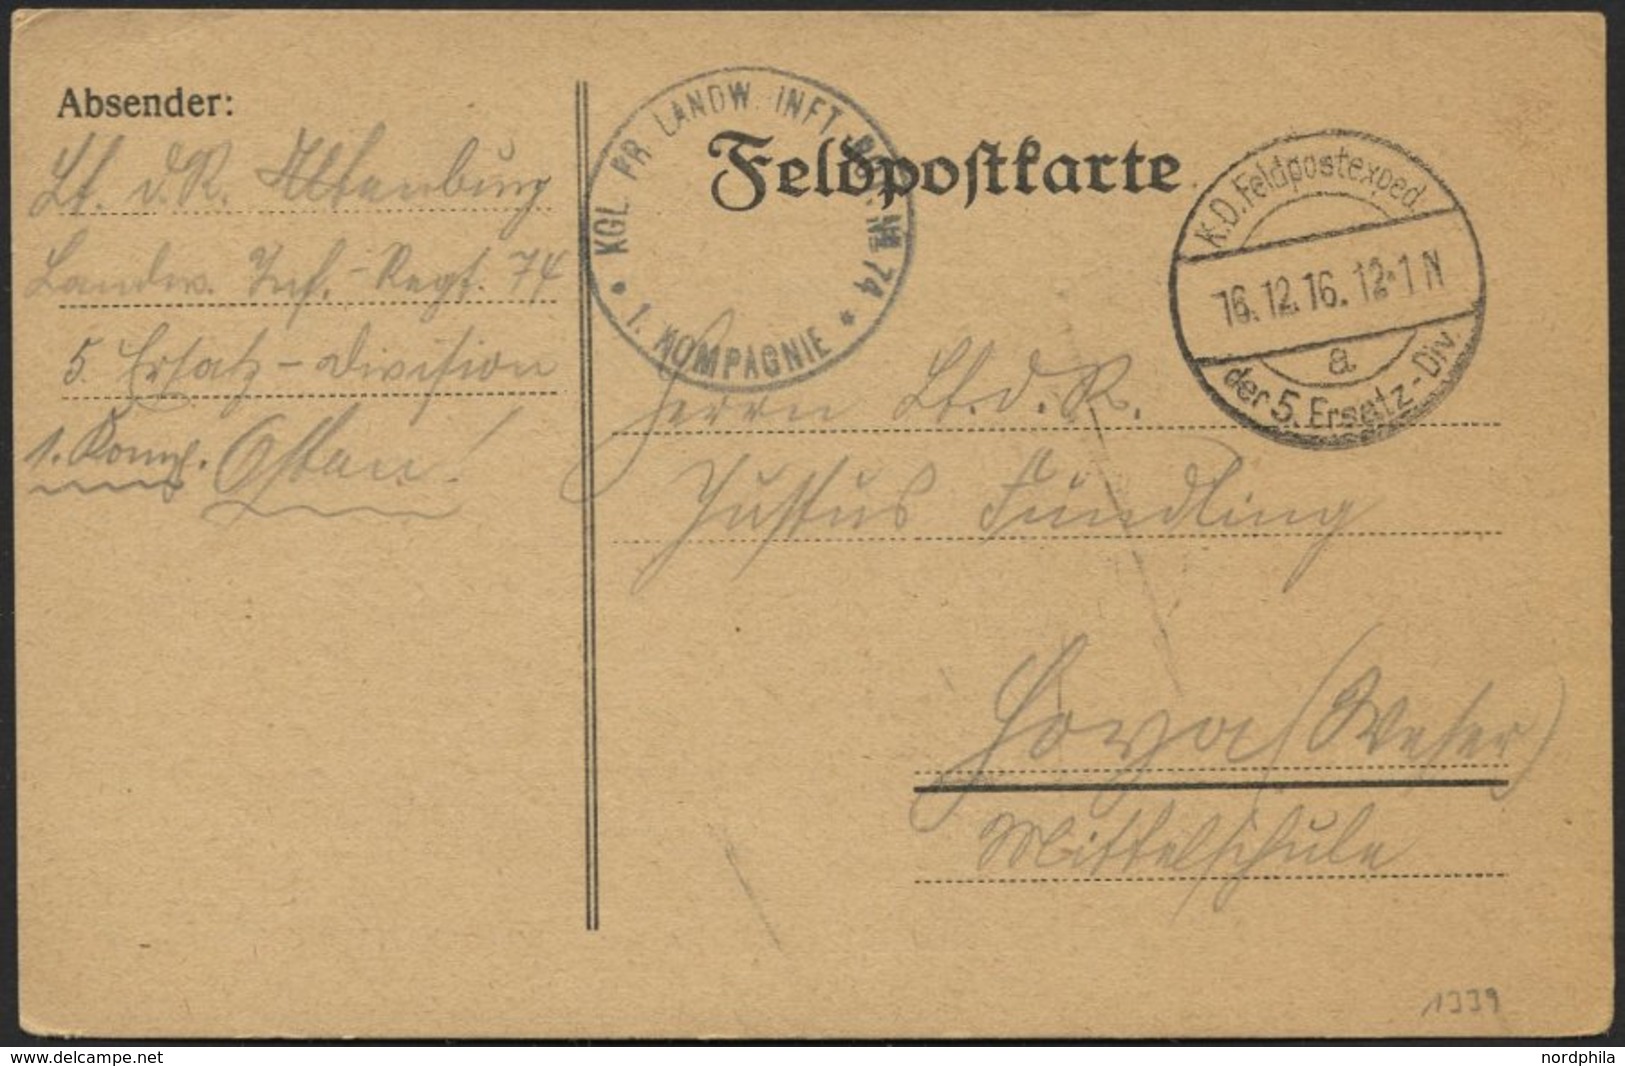 Absender:
Lt. d. R. Altenburg
Landw. Inf.-Regt. 74
5. Ersatz-Division
1. Komp. Osten!
KGL. PR. LANDW. INFT. REGT. No 74
* 1. KOMPAGNIE *
Feldpostkarte
K.D. Feldpostexped.
16.12.16. 12-1 N
a
der 5. Ersatz-Div.
Herrn Lt. d. R.
Justus Fündling
Hoya (Weser)
Mittelschule
1339
www.delcampe.net
nordphila